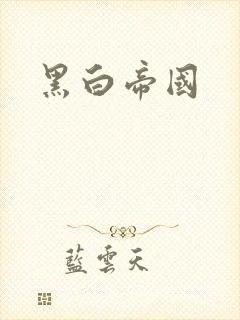 黑白帝國
藍雲天